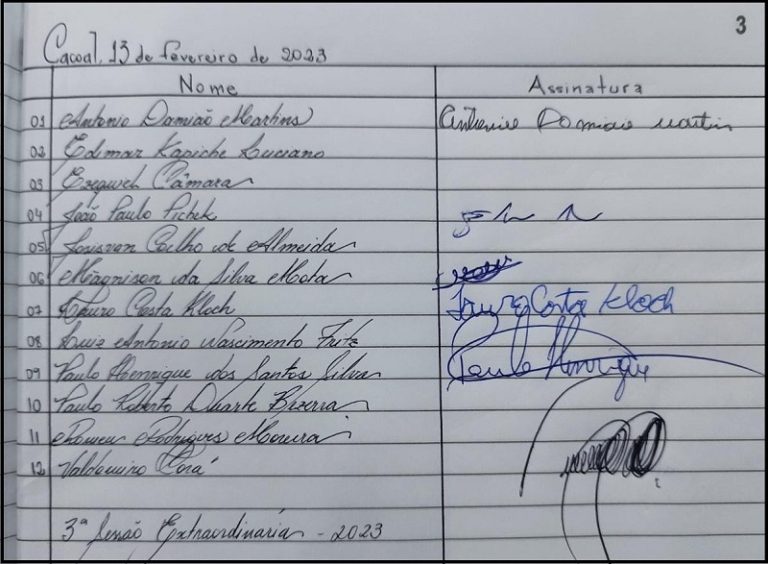 3
Cacoal, 13 de fevereiro de 2023
Nome Assinatura
01 Antonio Damião Martins Antonio Damião Martins
02 Edimar Kapiche Luciano
03 Ezequiel Câmara
04 João Paulo Pichek
05 Lorisvan Coelho de Almeida
06 Magnison da Silva Mota
07 Lauro Costa Kloch Lauro Costa Kloch
08 Luiz Antonio Nascimento Fritz
09 Paulo Henrique dos Santos Silva Paulo Henrique
10 Paulo Roberto Duarte Bezerra
11 Romeu Rodrigues Moreira
12 Valdomiro Corá
3ª Sessão Extraordinária - 2023